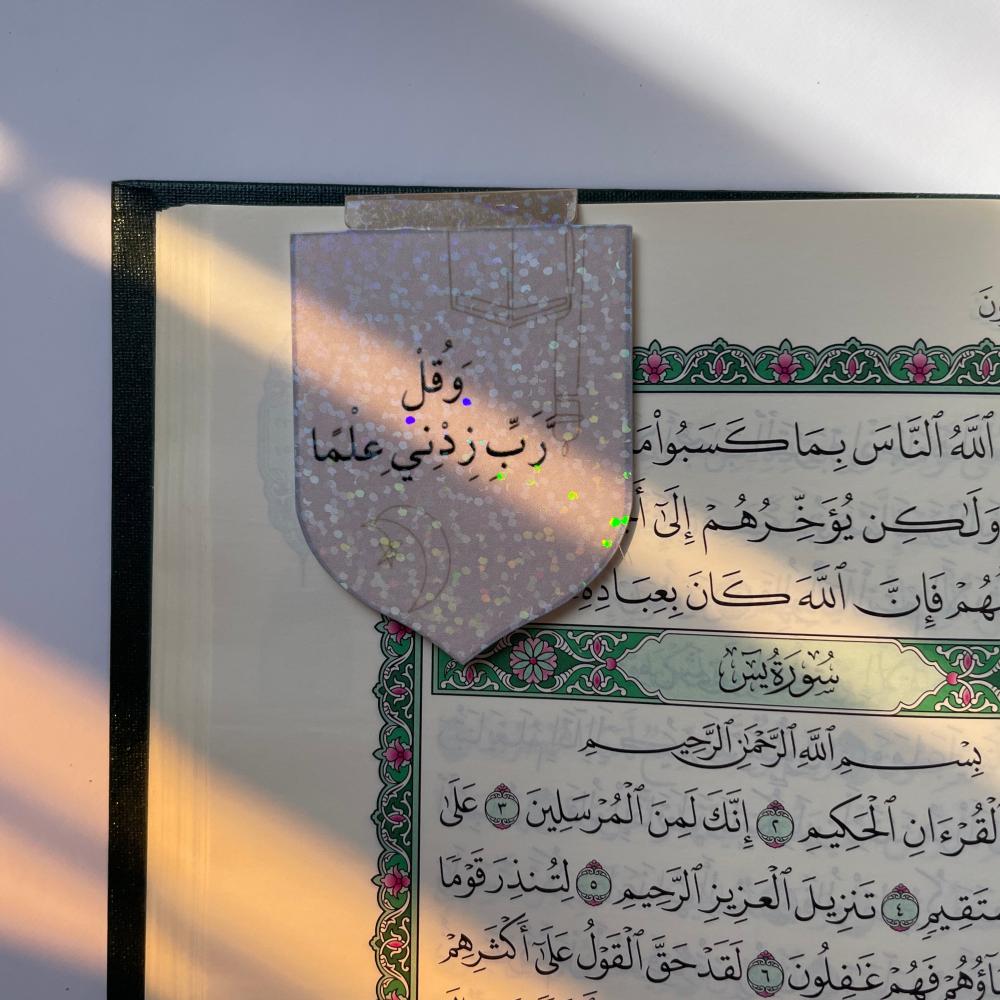 وَقُلْ
رَبِّ زِدْنِي عِلْمًا
ٱللَّهُ ٱلنَّاسَ بِمَا كَسَبُوا۟ مَا
وَلَٰكِن يُؤَخِّرُهُمْ إِلَىٰٓ
فَإِنَّ ٱللَّهَ كَانَ بِعِبَادِهِۦ
سُورَةُ يسٓ
بِسْمِ ٱللَّهِ ٱلرَّحْمَٰنِ ٱلرَّحِيمِ
ٱلْقُرْءَانِ ٱلْحَكِيمِ ٢ إِنَّكَ لَمِنَ ٱلْمُرْسَلِينَ ٣ عَلَىٰ
٤ تَنزِيلَ ٱلْعَزِيزِ ٱلرَّحِيمِ ٥ لِتُنذِرَ قَوْمًا
فَهُمْ غَٰفِلُونَ ٦ لَقَدْ حَقَّ ٱلْقَوْلُ عَلَىٰٓ أَكْثَرِهِمْ